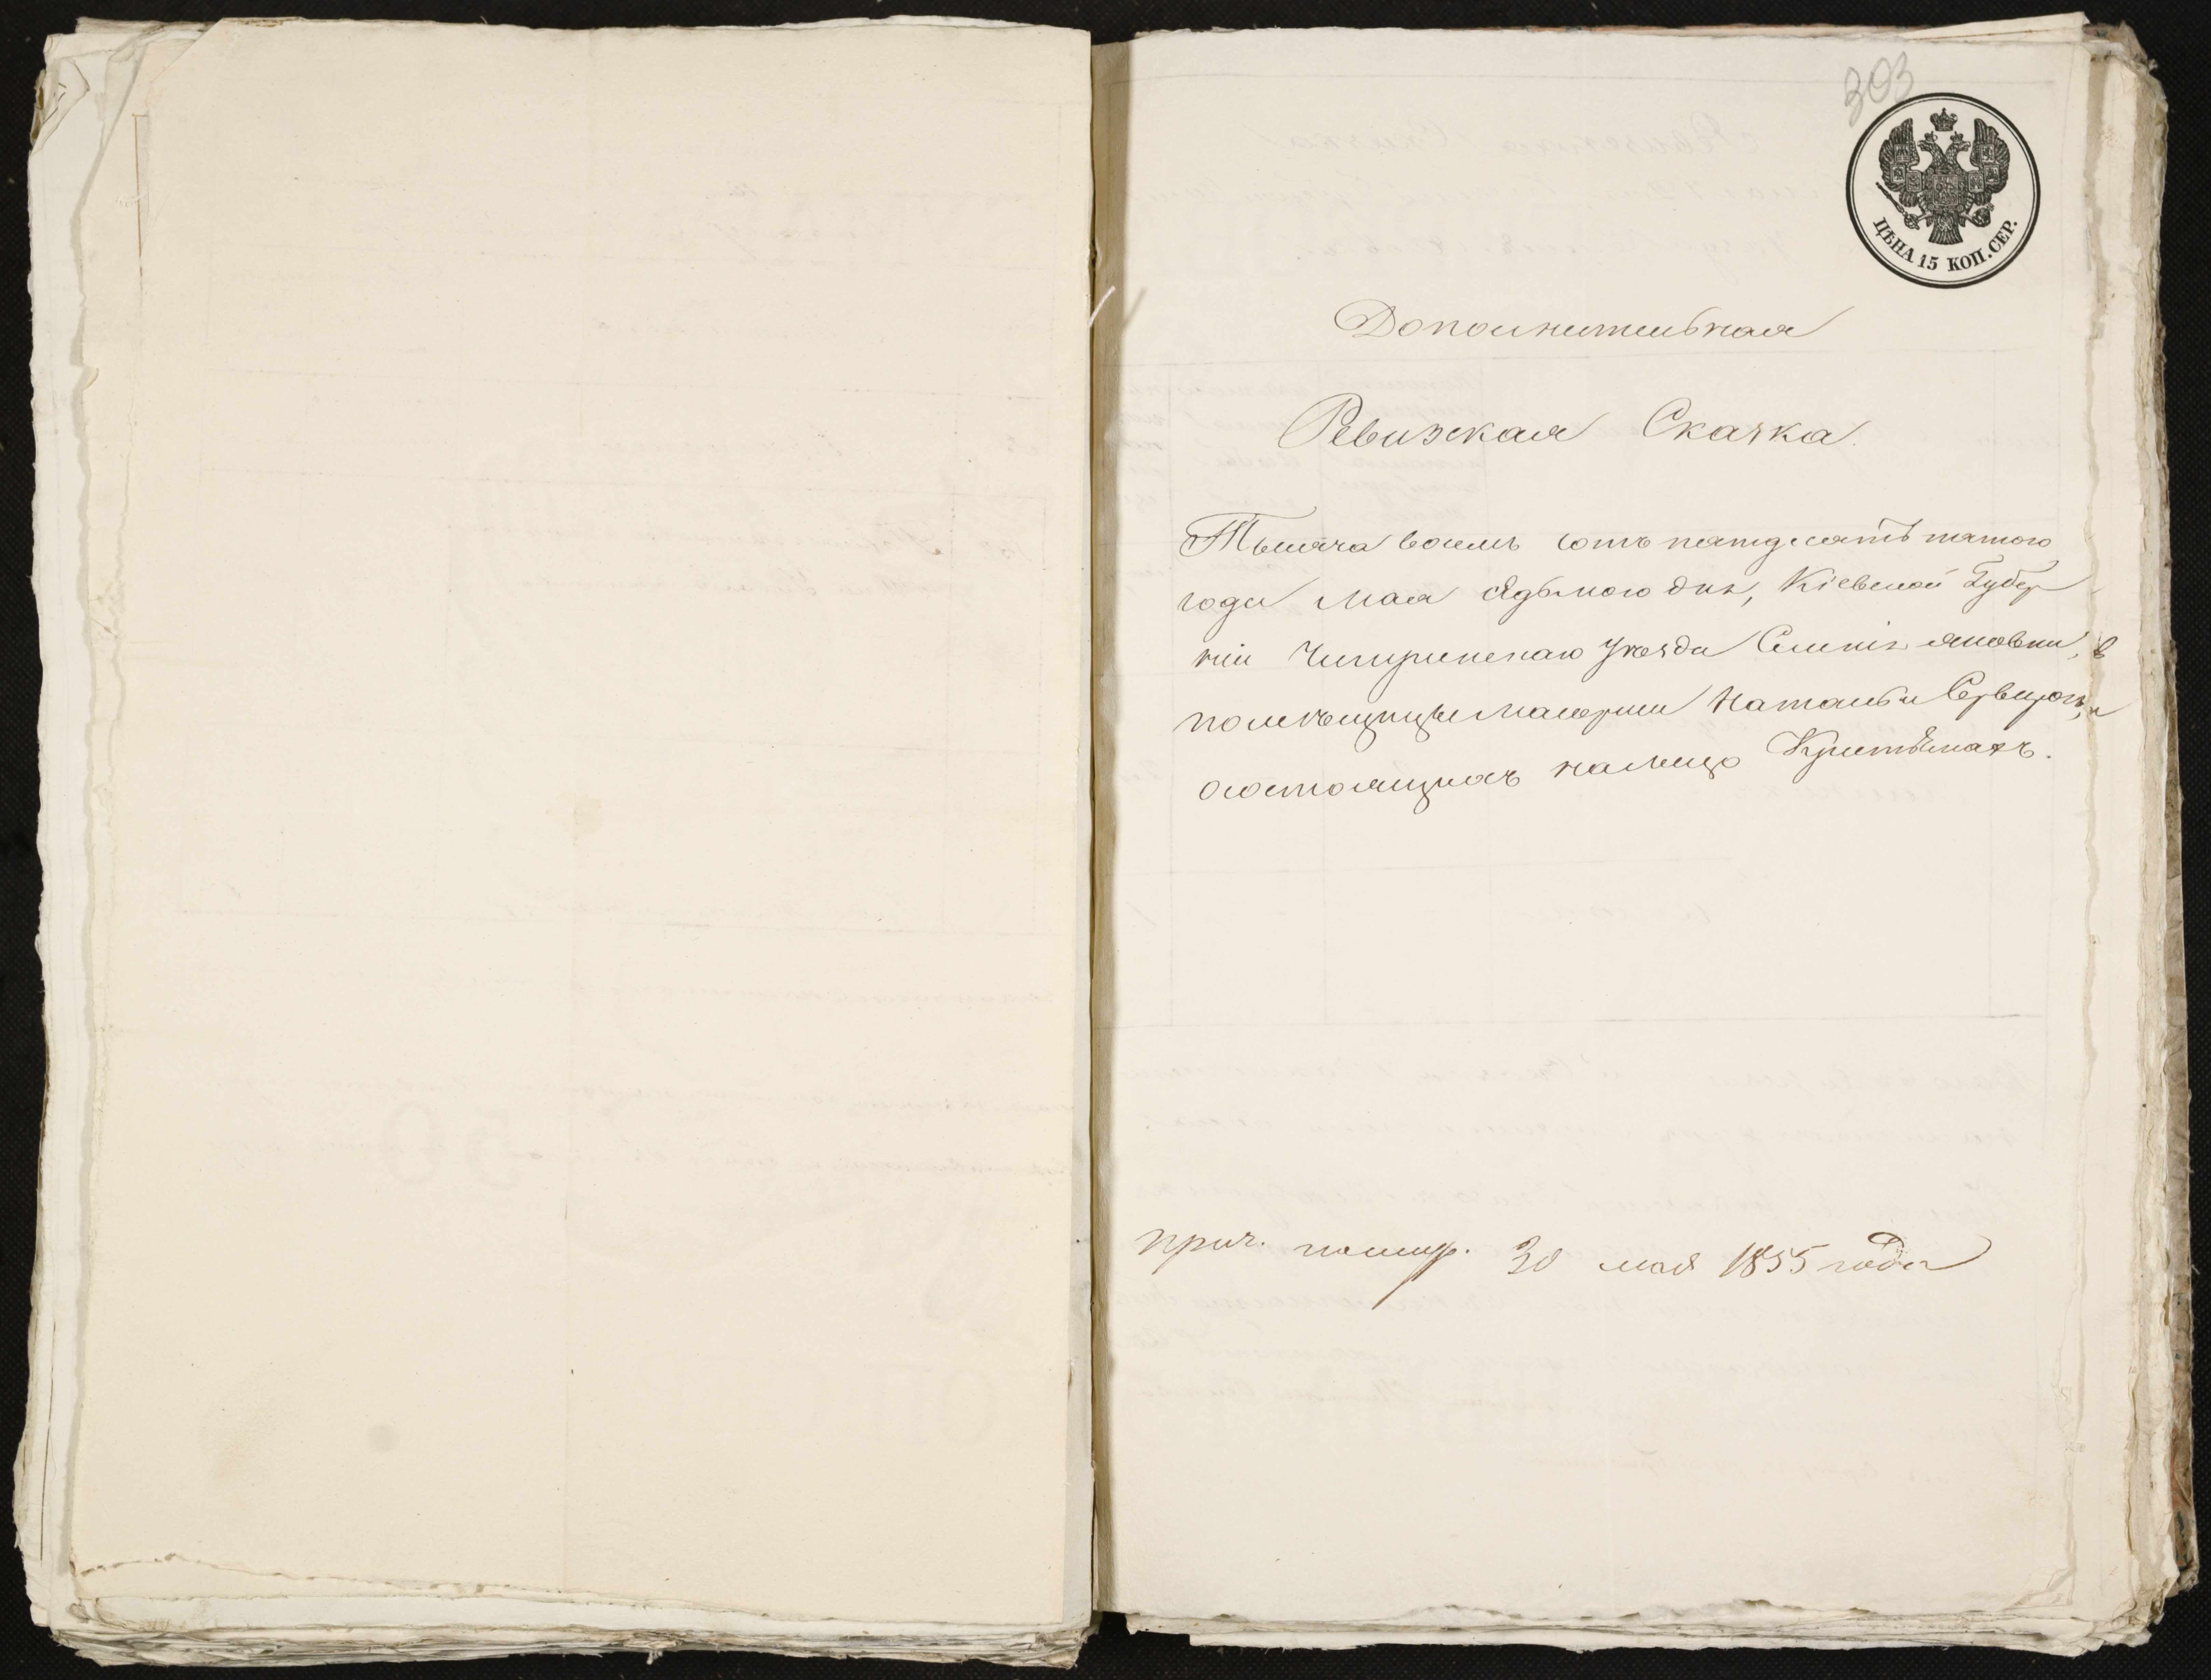 303
ЦѢНА 15 КОП. СЕР.
Дополнительная
Ревизская Сказка.
Тысяча восемь сотъ пятдесятъ пятого
года мая седьмого дня, Кіевской Губер
ніи Чигиринскаго уѣзда
помѣщицы маіорши Натальи
состоящихъ налицо Крестьянахъ.
30 мая 1855 года